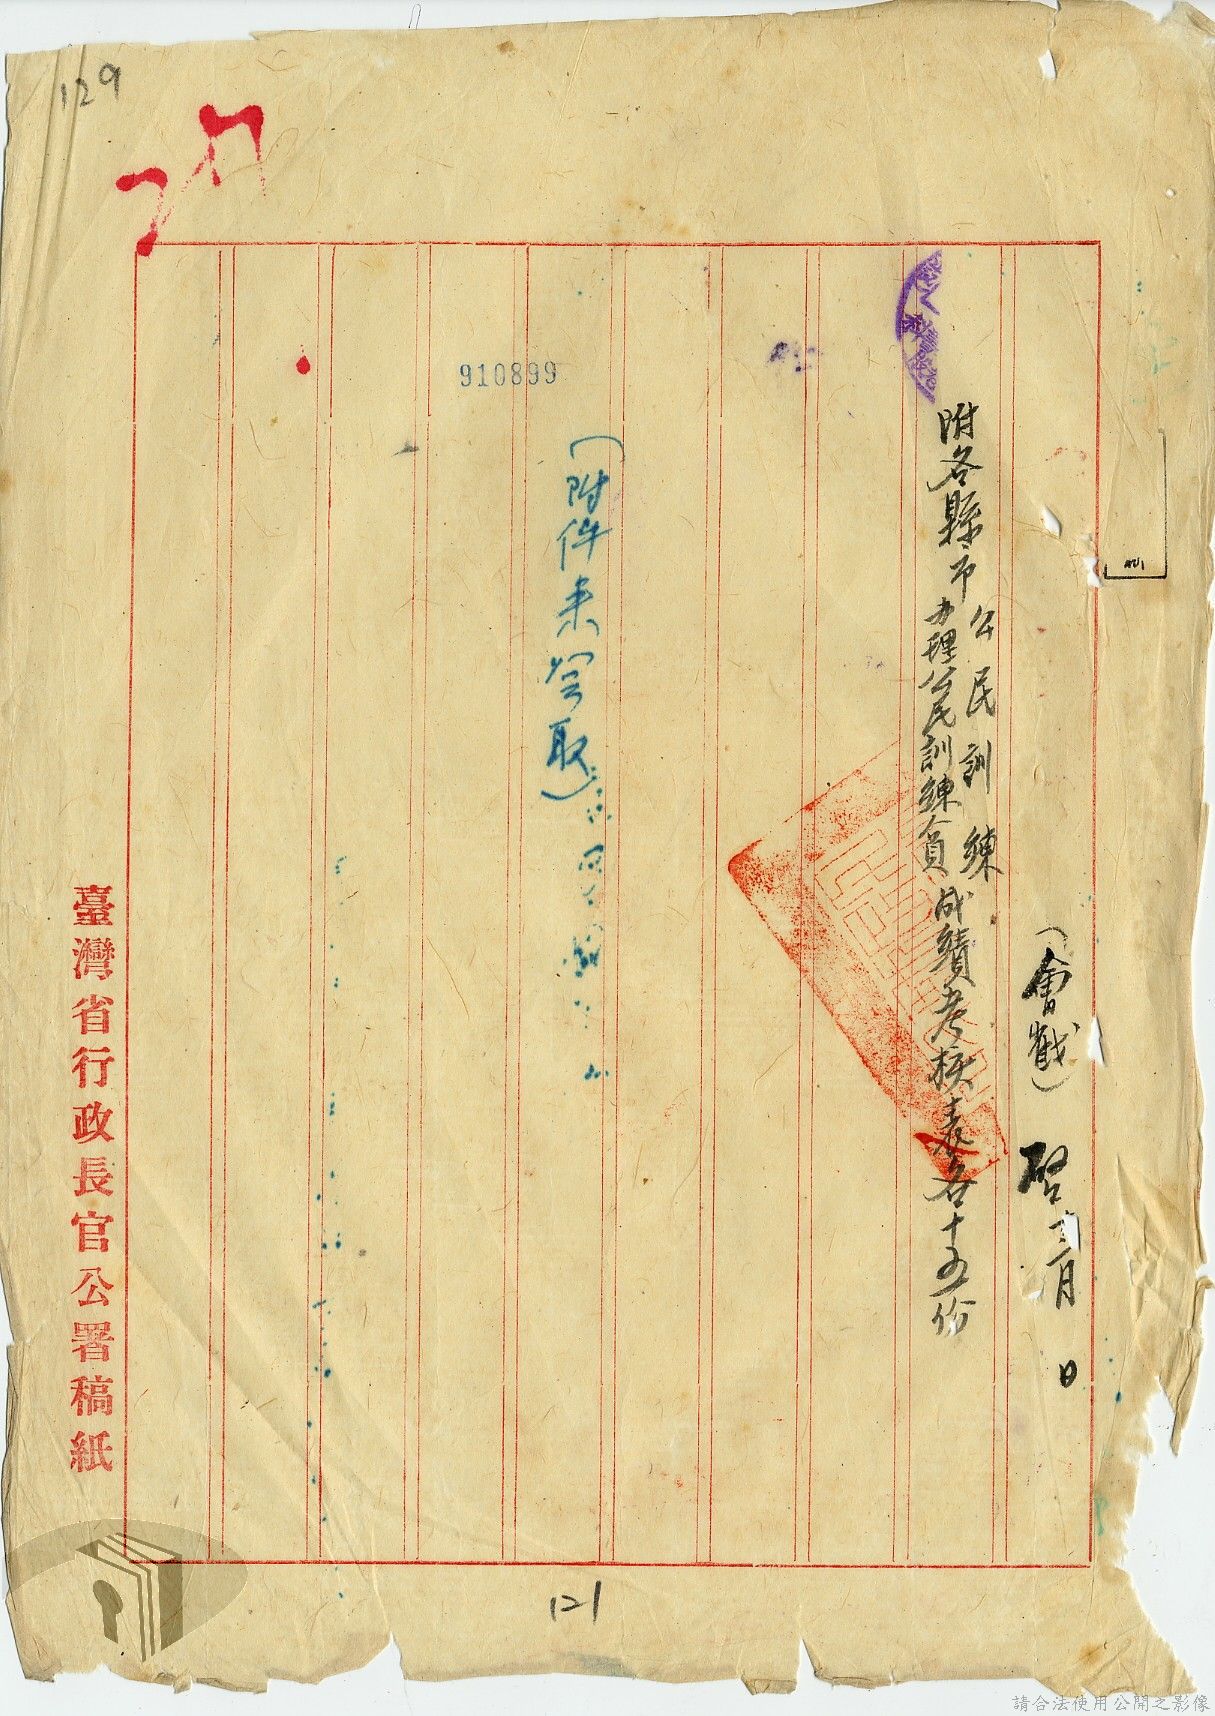 129
(會戳)
月 日
附各縣市公民訓練成績考核表各十五份
办理公民訓練人員
910899
(附件未繕取)
臺灣省行政長官公署稿紙
121
請合法使用公開之影像